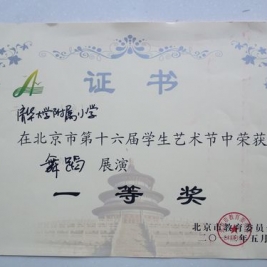 证书
清华大学附属小学
在北京市第十六届学生艺术节中荣获
舞蹈 展演
一等奖
北京市教育委员
二〇一三年五月